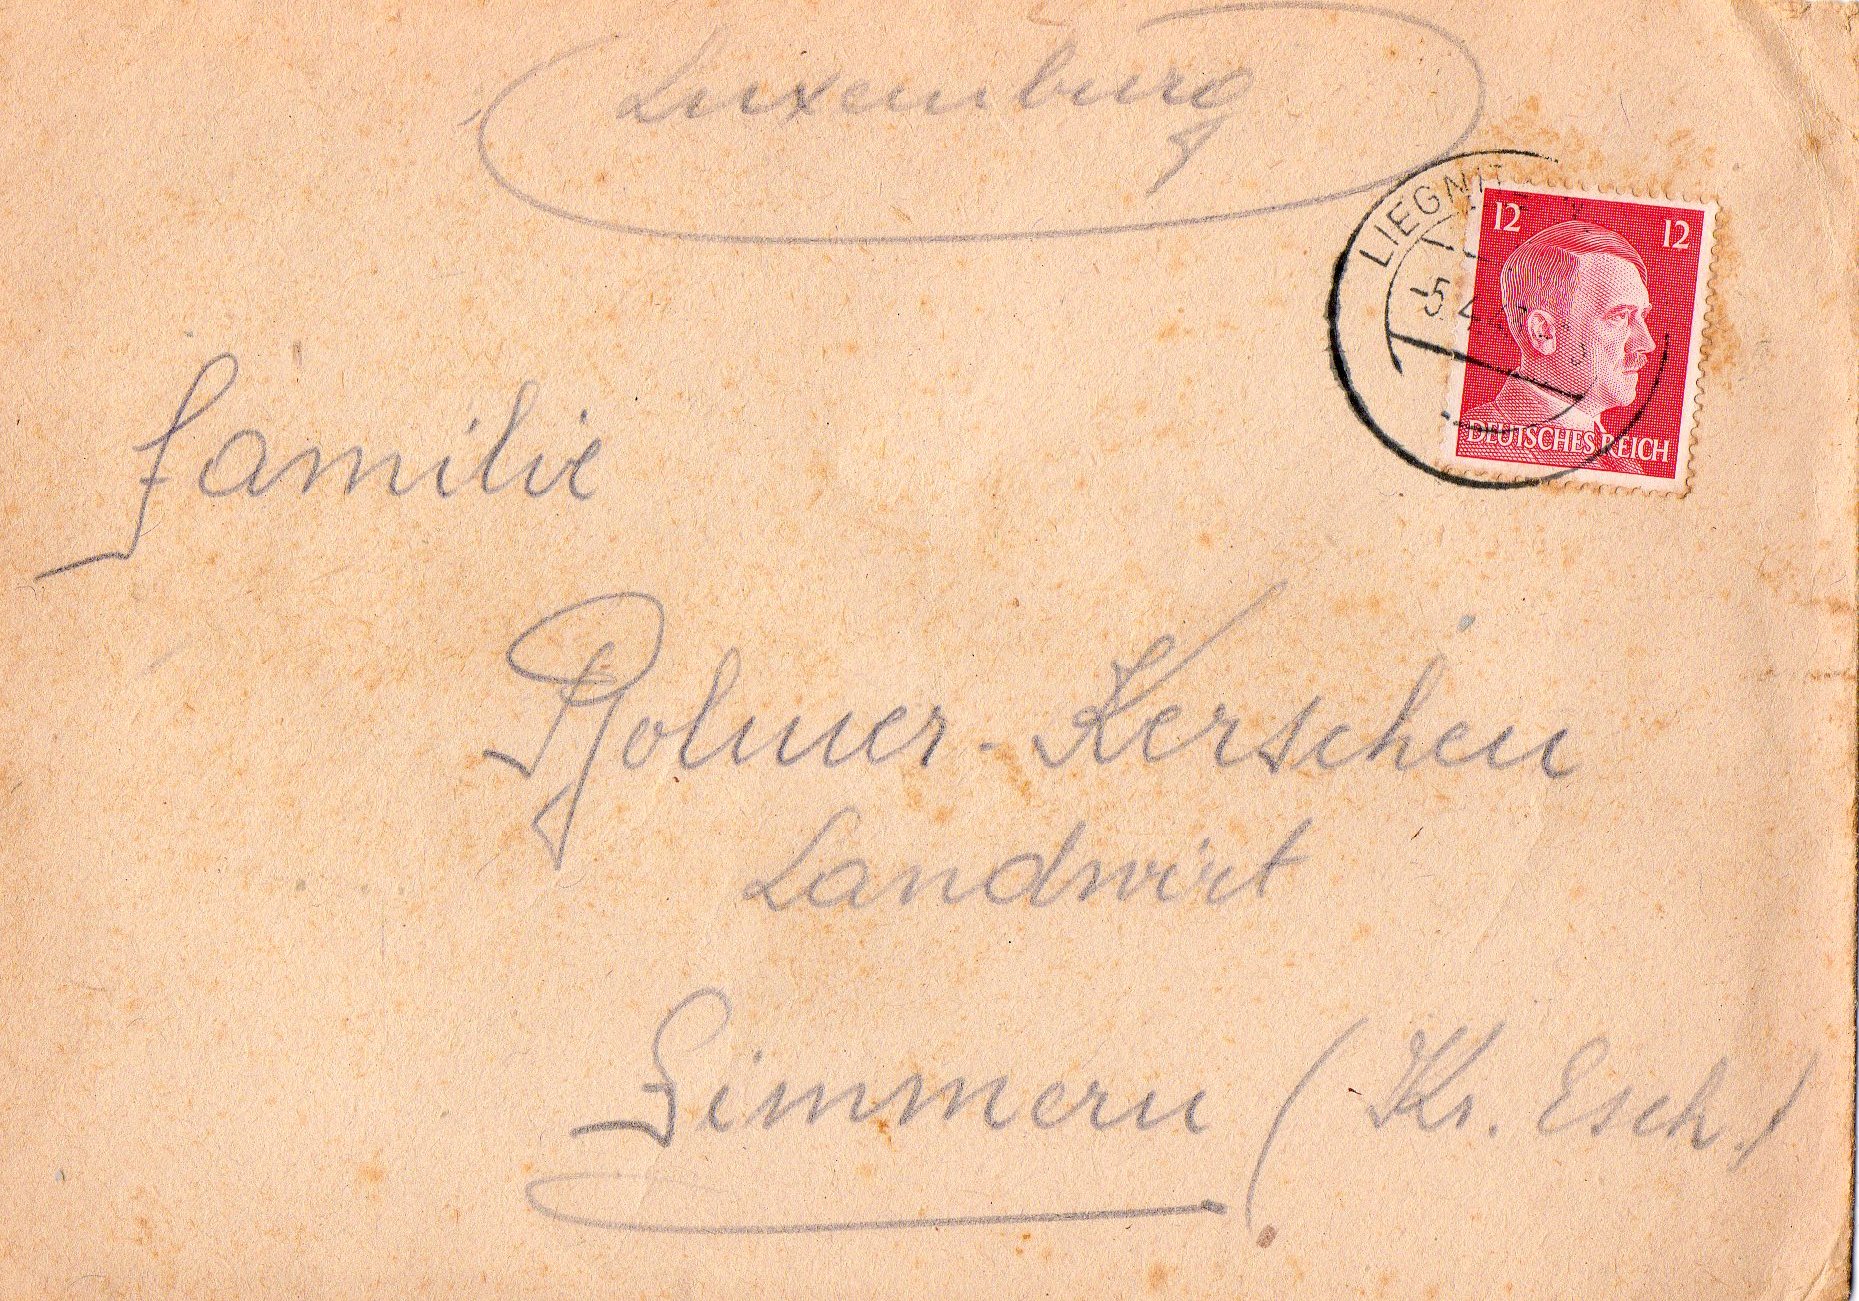 Luxemburg
LIEGNIT
-5.4.4
12 12
DEUTSCHES REICH
Familie
Rolmer-Kerschen
Landwirt
Simmern (Kr. Esch.)